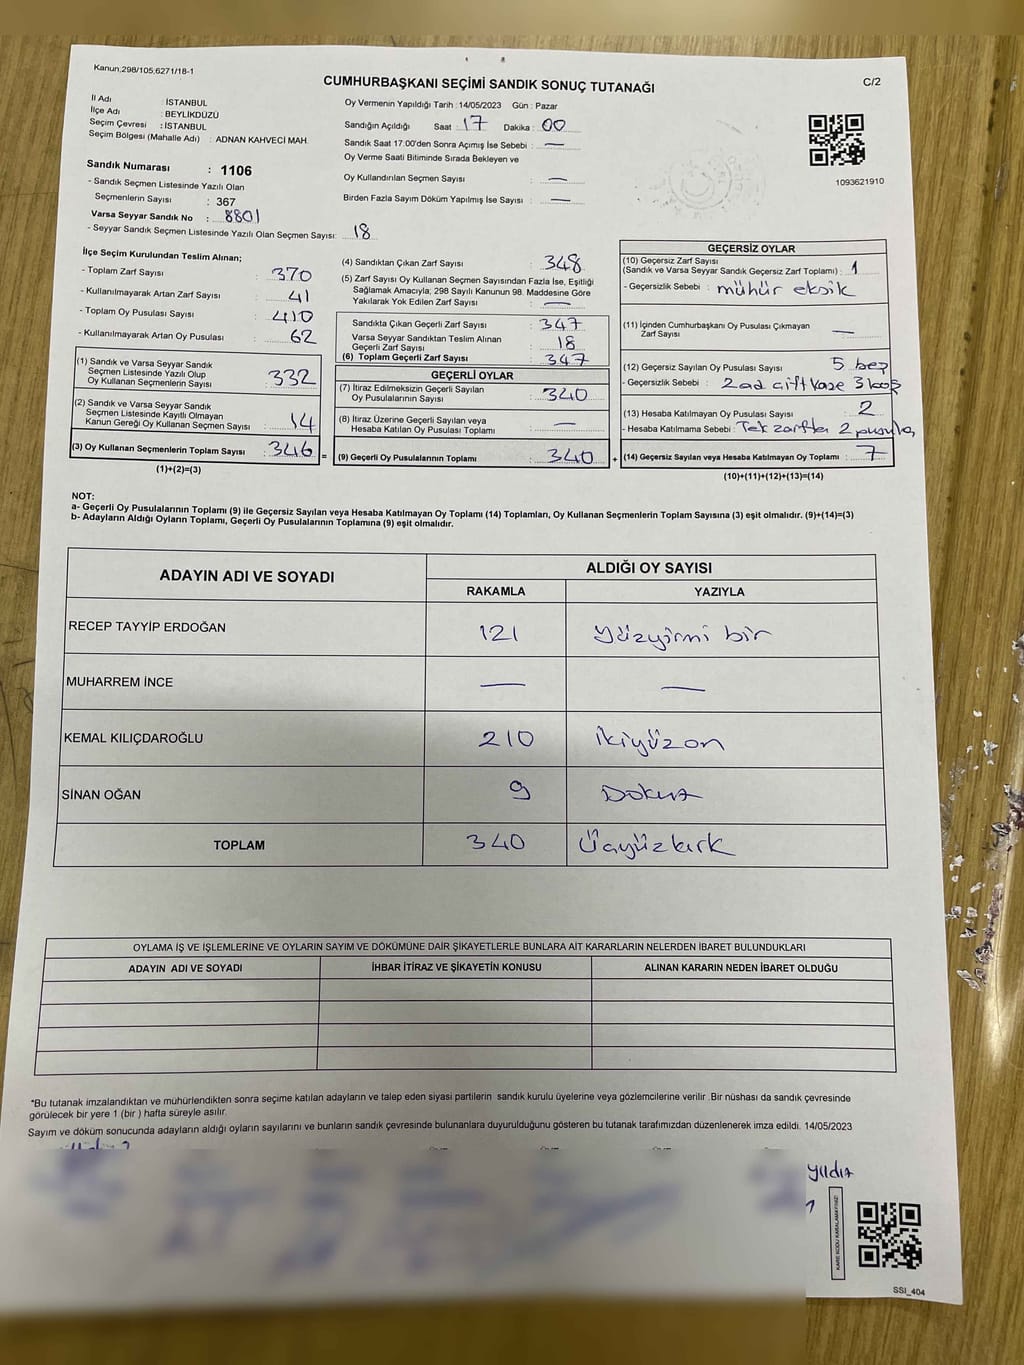 Kanun,298/105,6271/18-1
CUMHURBAŞKANI SEÇİMİ SANDIK SONUÇ TUTANAĞI
C/2
İl Adı : İSTANBUL
İlçe Adı : BEYLİKDÜZÜ
Seçim Çevresi : İSTANBUL
Seçim Bölgesi (Mahalle Adı) : ADNAN KAHVECİ MAH.
Sandık Numarası : 1106
- Sandık Seçmen Listesinde Yazılı Olan
Seçmenlerin Sayısı : 367
Varsa Seyyar Sandık No : 8801
- Seyyar Sandık Seçmen Listesinde Yazılı Olan Seçmen Sayısı: 18
Oy Vermenin Yapıldığı Tarih : 14/05/2023 Gün : Pazar
Sandığın Açıldığı Saat : 17 Dakika : 00
Sandık Saat 17:00'den Sonra Açımış İse Sebebi : —
Oy Verme Saati Bitiminde Sırada Bekleyen ve
Oy Kullandırılan Seçmen Sayısı : —
Birden Fazla Sayım Döküm Yapılmış İse Sayısı : —
1093621910
İlçe Seçim Kurulundan Teslim Alınan;
- Toplam Zarf Sayısı : 370
- Kullanılmayarak Artan Zarf Sayısı : 41
- Toplam Oy Pusulası Sayısı : 410
- Kullanılmayarak Artan Oy Pusulası : 62
(1) Sandık ve Varsa Seyyar Sandık
Seçmen Listesinde Yazılı Olup
Oy Kullanan Seçmenlerin Sayısı : 332
(2) Sandık ve Varsa Seyyar Sandık
Seçmen Listesinde Kayıtlı Olmayan
Kanun Gereği Oy Kullanan Seçmen Sayısı : 14
(3) Oy Kullanan Seçmenlerin Toplam Sayısı : 346 =
(1)+(2)=(3)
(4) Sandıktan Çıkan Zarf Sayısı : 348
(5) Zarf Sayısı Oy Kullanan Seçmen Sayısından Fazla İse, Eşitliği
Sağlamak Amacıyla; 298 Sayılı Kanunun 98. Maddesine Göre
Yakılarak Yok Edilen Zarf Sayısı : —
Sandıkta Çıkan Geçerli Zarf Sayısı : 347
Varsa Seyyar Sandıktan Teslim Alınan
Geçerli Zarf Sayısı : 18
(6) Toplam Geçerli Zarf Sayısı : 347
GEÇERLİ OYLAR
(7) İtiraz Edilmeksizin Geçerli Sayılan
Oy Pusulalarının Sayısı : 340
(8) İtiraz Üzerine Geçerli Sayılan veya
Hesaba Katılan Oy Pusulası Toplamı : —
(9) Geçerli Oy Pusulalarının Toplamı : 340 +
GEÇERSİZ OYLAR
(10) Geçersiz Zarf Sayısı
(Sandık ve Varsa Seyyar Sandık Geçersiz Zarf Toplamı) : 1
- Geçersizlik Sebebi : mühür eksik
(11) İçinden Cumhurbaşkanı Oy Pusulası Çıkmayan
Zarf Sayısı : —
(12) Geçersiz Sayılan Oy Pusulası Sayısı : 5 beş
- Geçersizlik Sebebi : 2 ad çift kaşe 3 boş
(13) Hesaba Katılmayan Oy Pusulası Sayısı : 2
- Hesaba Katılmama Sebebi : Tek zarfta 2 pusula
(14) Geçersiz Sayılan veya Hesaba Katılmayan Oy Toplamı : 7
(10)+(11)+(12)+(13)=(14)
NOT:
a- Geçerli Oy Pusulalarının Toplamı (9) ile Geçersiz Sayılan veya Hesaba Katılmayan Oy Toplamı (14) Toplamları, Oy Kullanan Seçmenlerin Toplam Sayısına (3) eşit olmalıdır. (9)+(14)=(3)
b- Adayların Aldığı Oyların Toplamı, Geçerli Oy Pusulalarının Toplamına (9) eşit olmalıdır.
ADAYIN ADI VE SOYADI
ALDIĞI OY SAYISI
RAKAMLA YAZIYLA
RECEP TAYYİP ERDOĞAN 121 Yüzyirmi bir
MUHARREM İNCE — —
KEMAL KILIÇDAROĞLU 210 İkiyüzon
SİNAN OĞAN 9 Dokuz
TOPLAM 340 Üçyüzkırk
OYLAMA İŞ VE İŞLEMLERİNE VE OYLARIN SAYIM VE DÖKÜMÜNE DAİR ŞİKAYETLERLE BUNLARA AİT KARARLARIN NELERDEN İBARET BULUNDUKLARI
ADAYIN ADI VE SOYADI İHBAR İTİRAZ VE ŞİKAYETİN KONUSU ALINAN KARARIN NEDEN İBARET OLDUĞU
*Bu tutanak imzalandıktan ve mühürlendikten sonra seçime katılan adayların ve talep eden siyasi partilerin sandık kurulu üyelerine veya gözlemcilerine verilir .Bir nüshası da sandık çevresinde
görülecek bir yere 1 (bir ) hafta süreyle asılır.
Sayım ve döküm sonucunda adayların aldığı oyların sayılarını ve bunların sandık çevresinde bulunanlara duyurulduğunu gösteren bu tutanak tarafımızdan düzenlenerek imza edildi. 14/05/2023
yıldız
KARE KODU KARALAMAYINIZ!
SSI_404